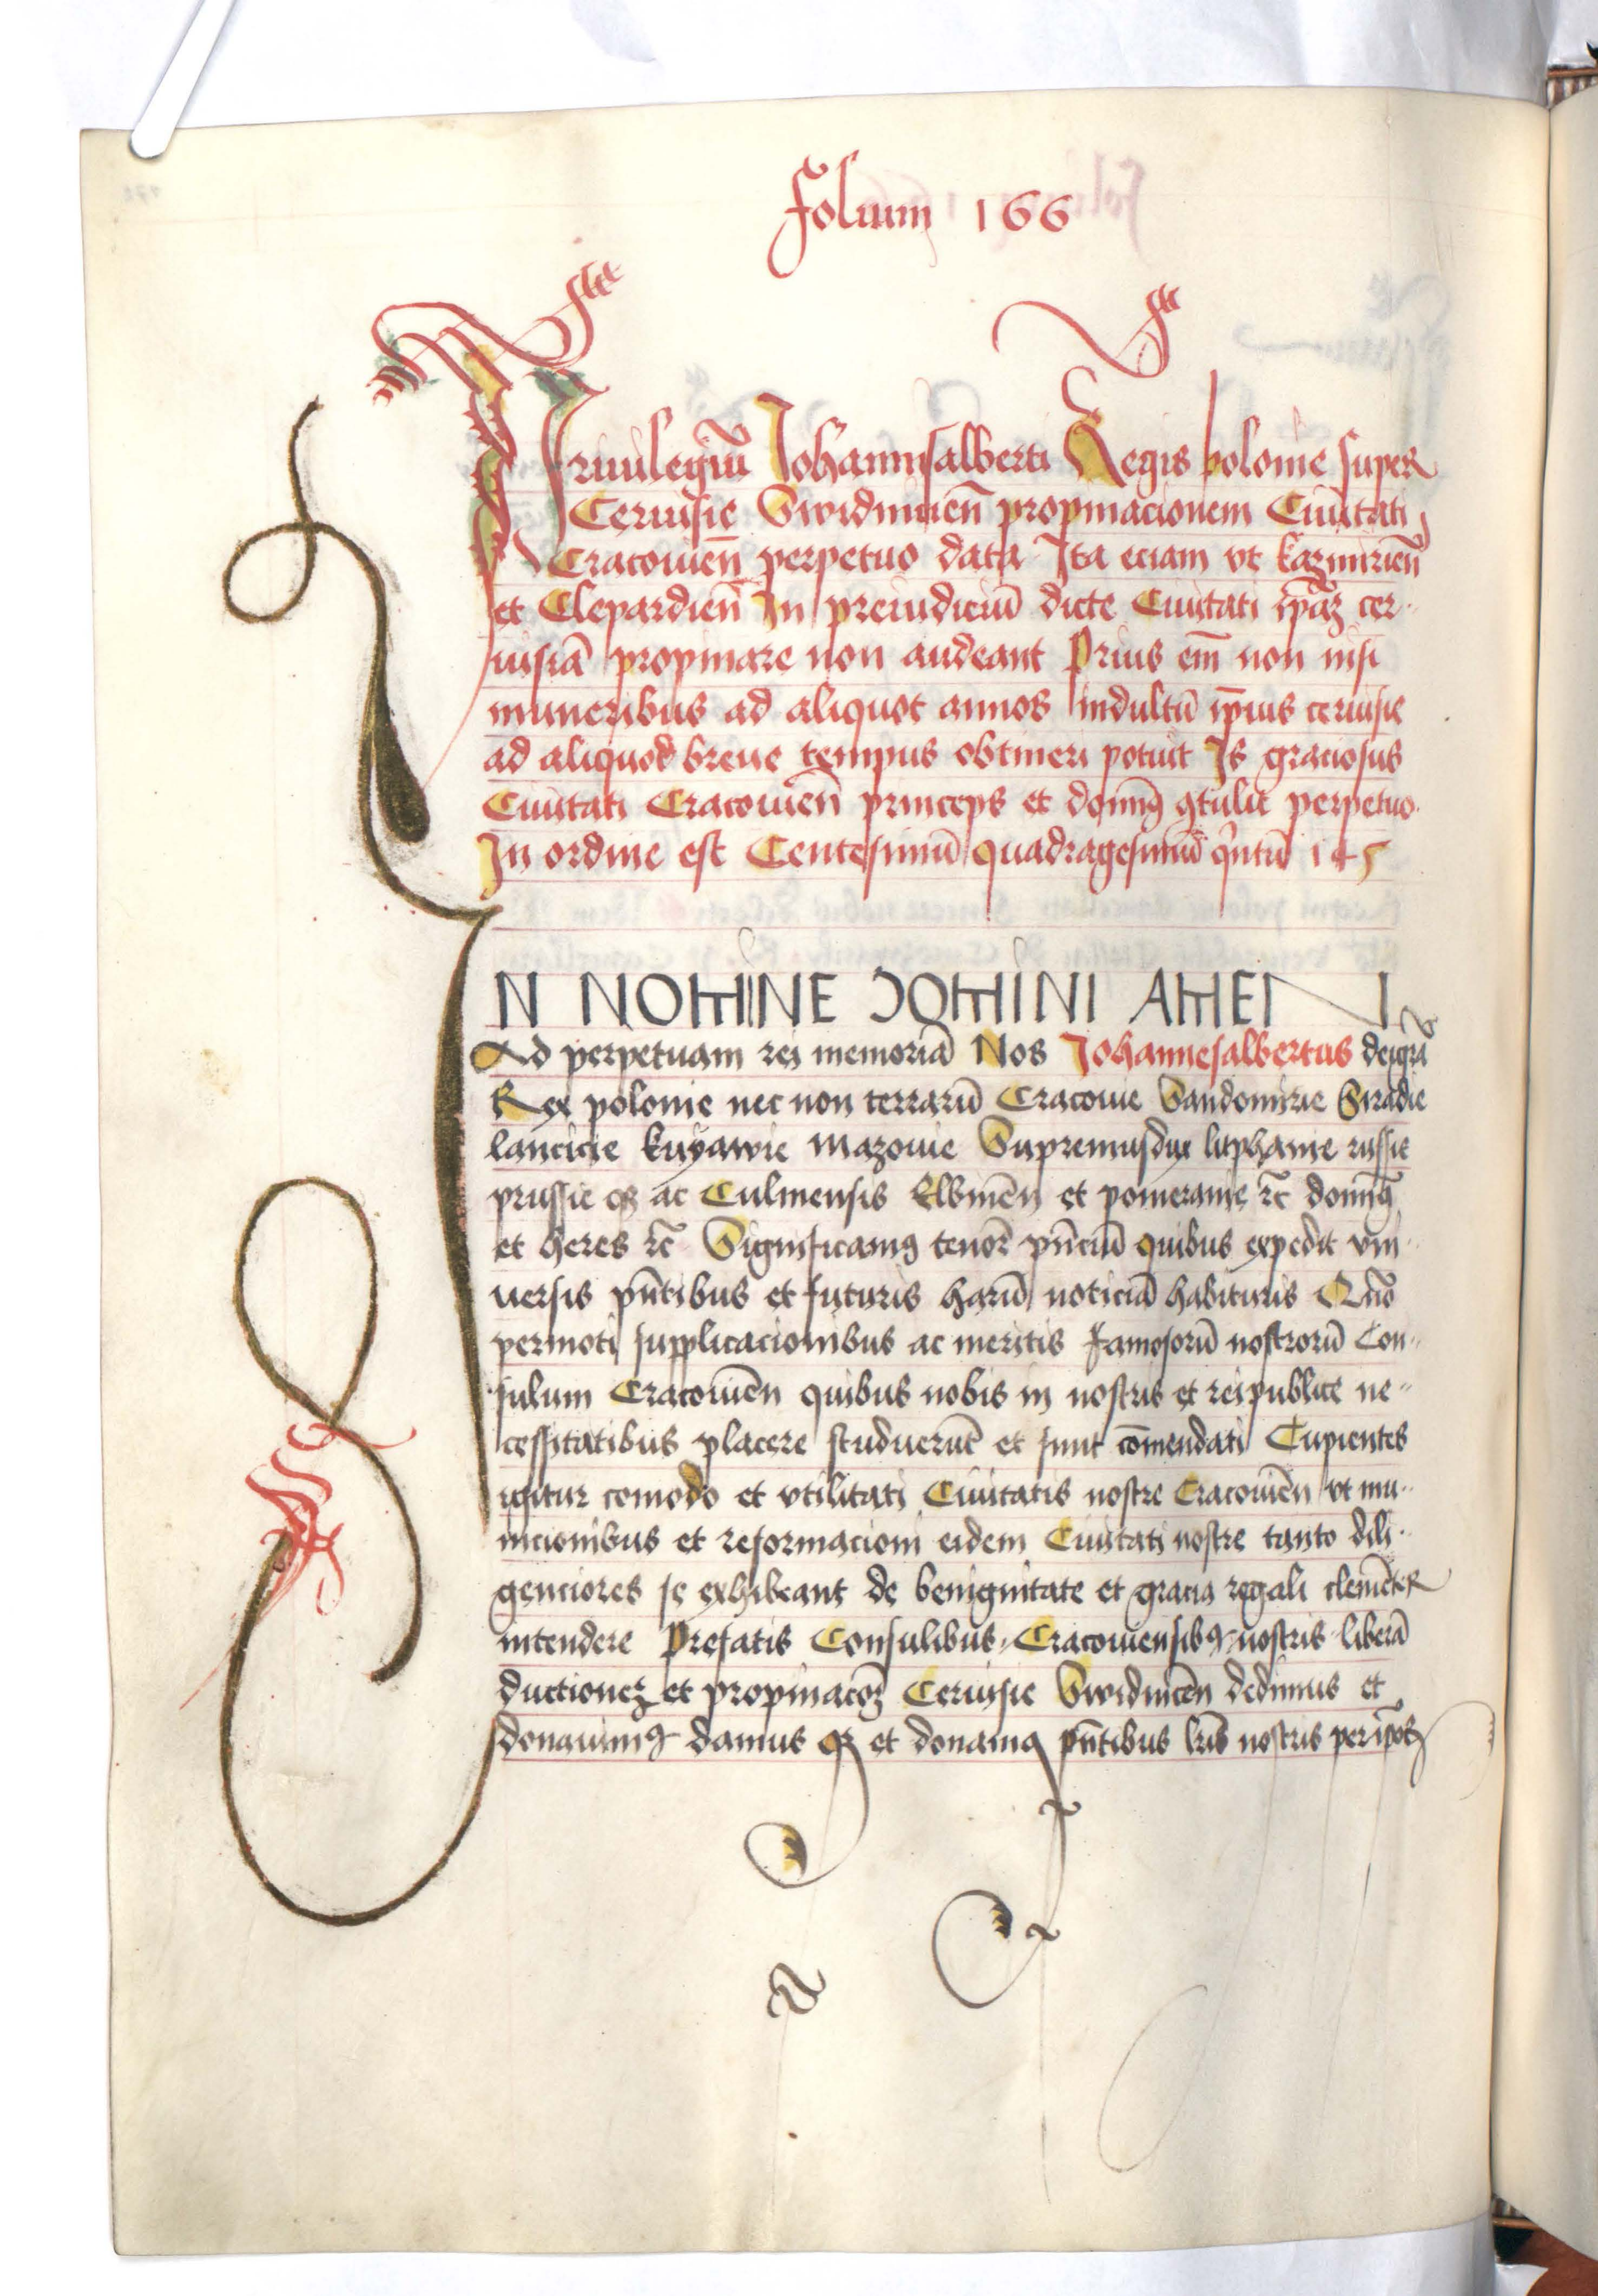 Folium 166
Priuilegiū Johannisalberti Regis polonie super
Ceruisie Swidnicień propinacionem Ciuitati
Cracouień perpetuo data Ita eciam vt kazmirień
et Clepardień In preiudiciū dicte Ciuitati ip̄aꝫ cer-
uisiā propinare non audeant Prius em̄ non nisi
muneribus ad aliquot annos indultū ip̄ius ceruisie
ad aliquod breue tempus obtineri potuit Is graciosus
Ciuitati Cracouień princeps et domīꝰ ꝯtulit perpetuo
In ordine est Centesimū quadragesimū qͥntū 145
IN NOMINE DOMINI AMEN
Ad perpetuam rei memoriā Nos Johannesalbertus dei gr̄a
Rex polonie nec non terrarū Cracouie Sandomirie Siradie
lancicie kuyawie Mazouie Supremusdux litphanie russie
prussie qꝫ ac Culmensis Elbineń et pomeranie ꝛc̄ domīꝰ
et heres ꝛc̄ Significamꝰ tenore pn̄ciū quibus expedit vni-
uersis pn̄tibus et futuris harū noticiā habituris Quō
permoti supplicacionibus ac meritis famosorū nostrorū Con-
sulum Cracouień quibus nobis in nostris et reipublice ne-
cessitatibus placere studuerūt et sunt cōmendati Cupientes
igitur comodo et vtilitati Ciuitatis nostre Cracouień vt mu-
nicionibus et reformacioni eidem Ciuitati nostre tanto dili-
genciores se exhibeant de benignitate et gracia regali clemēter
intendere Prefatis Consulibus Cracouiensibꝰ nostris liberā
ductioneꝫ et propinacōꝫ Ceruisie Swidniceń dedimus et
donauimꝰ damus qꝫ et donamꝰ pn̄tibus lr̄is nostris per ip̄os